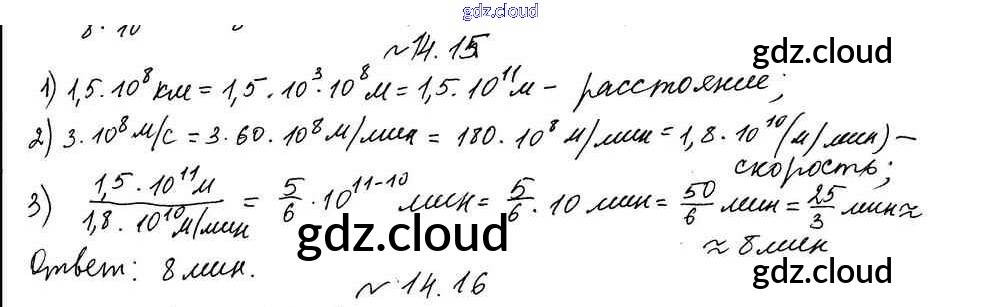 gdz.cloud
8·10
N14.15
gdz.cloud
1) 1,5·10⁸ км = 1,5·10³·10⁸ м = 1,5·10¹¹ м – расстояние;
2) 3·10⁸ м/с = 3·60·10⁸ м/мин = 180·10⁸ м/мин = 1,8·10¹⁰ (м/мин) –
скорость;
3) 1,5·10¹¹ м / 1,8·10¹⁰ м/мин = 5/6·10¹¹⁻¹⁰ мин = 5/6·10 мин = 50/6 мин = 25/3 мин ≈
gdz.cloud
≈ 8 мин
Ответ: 8 мин.
gdz.cloud
N14.16